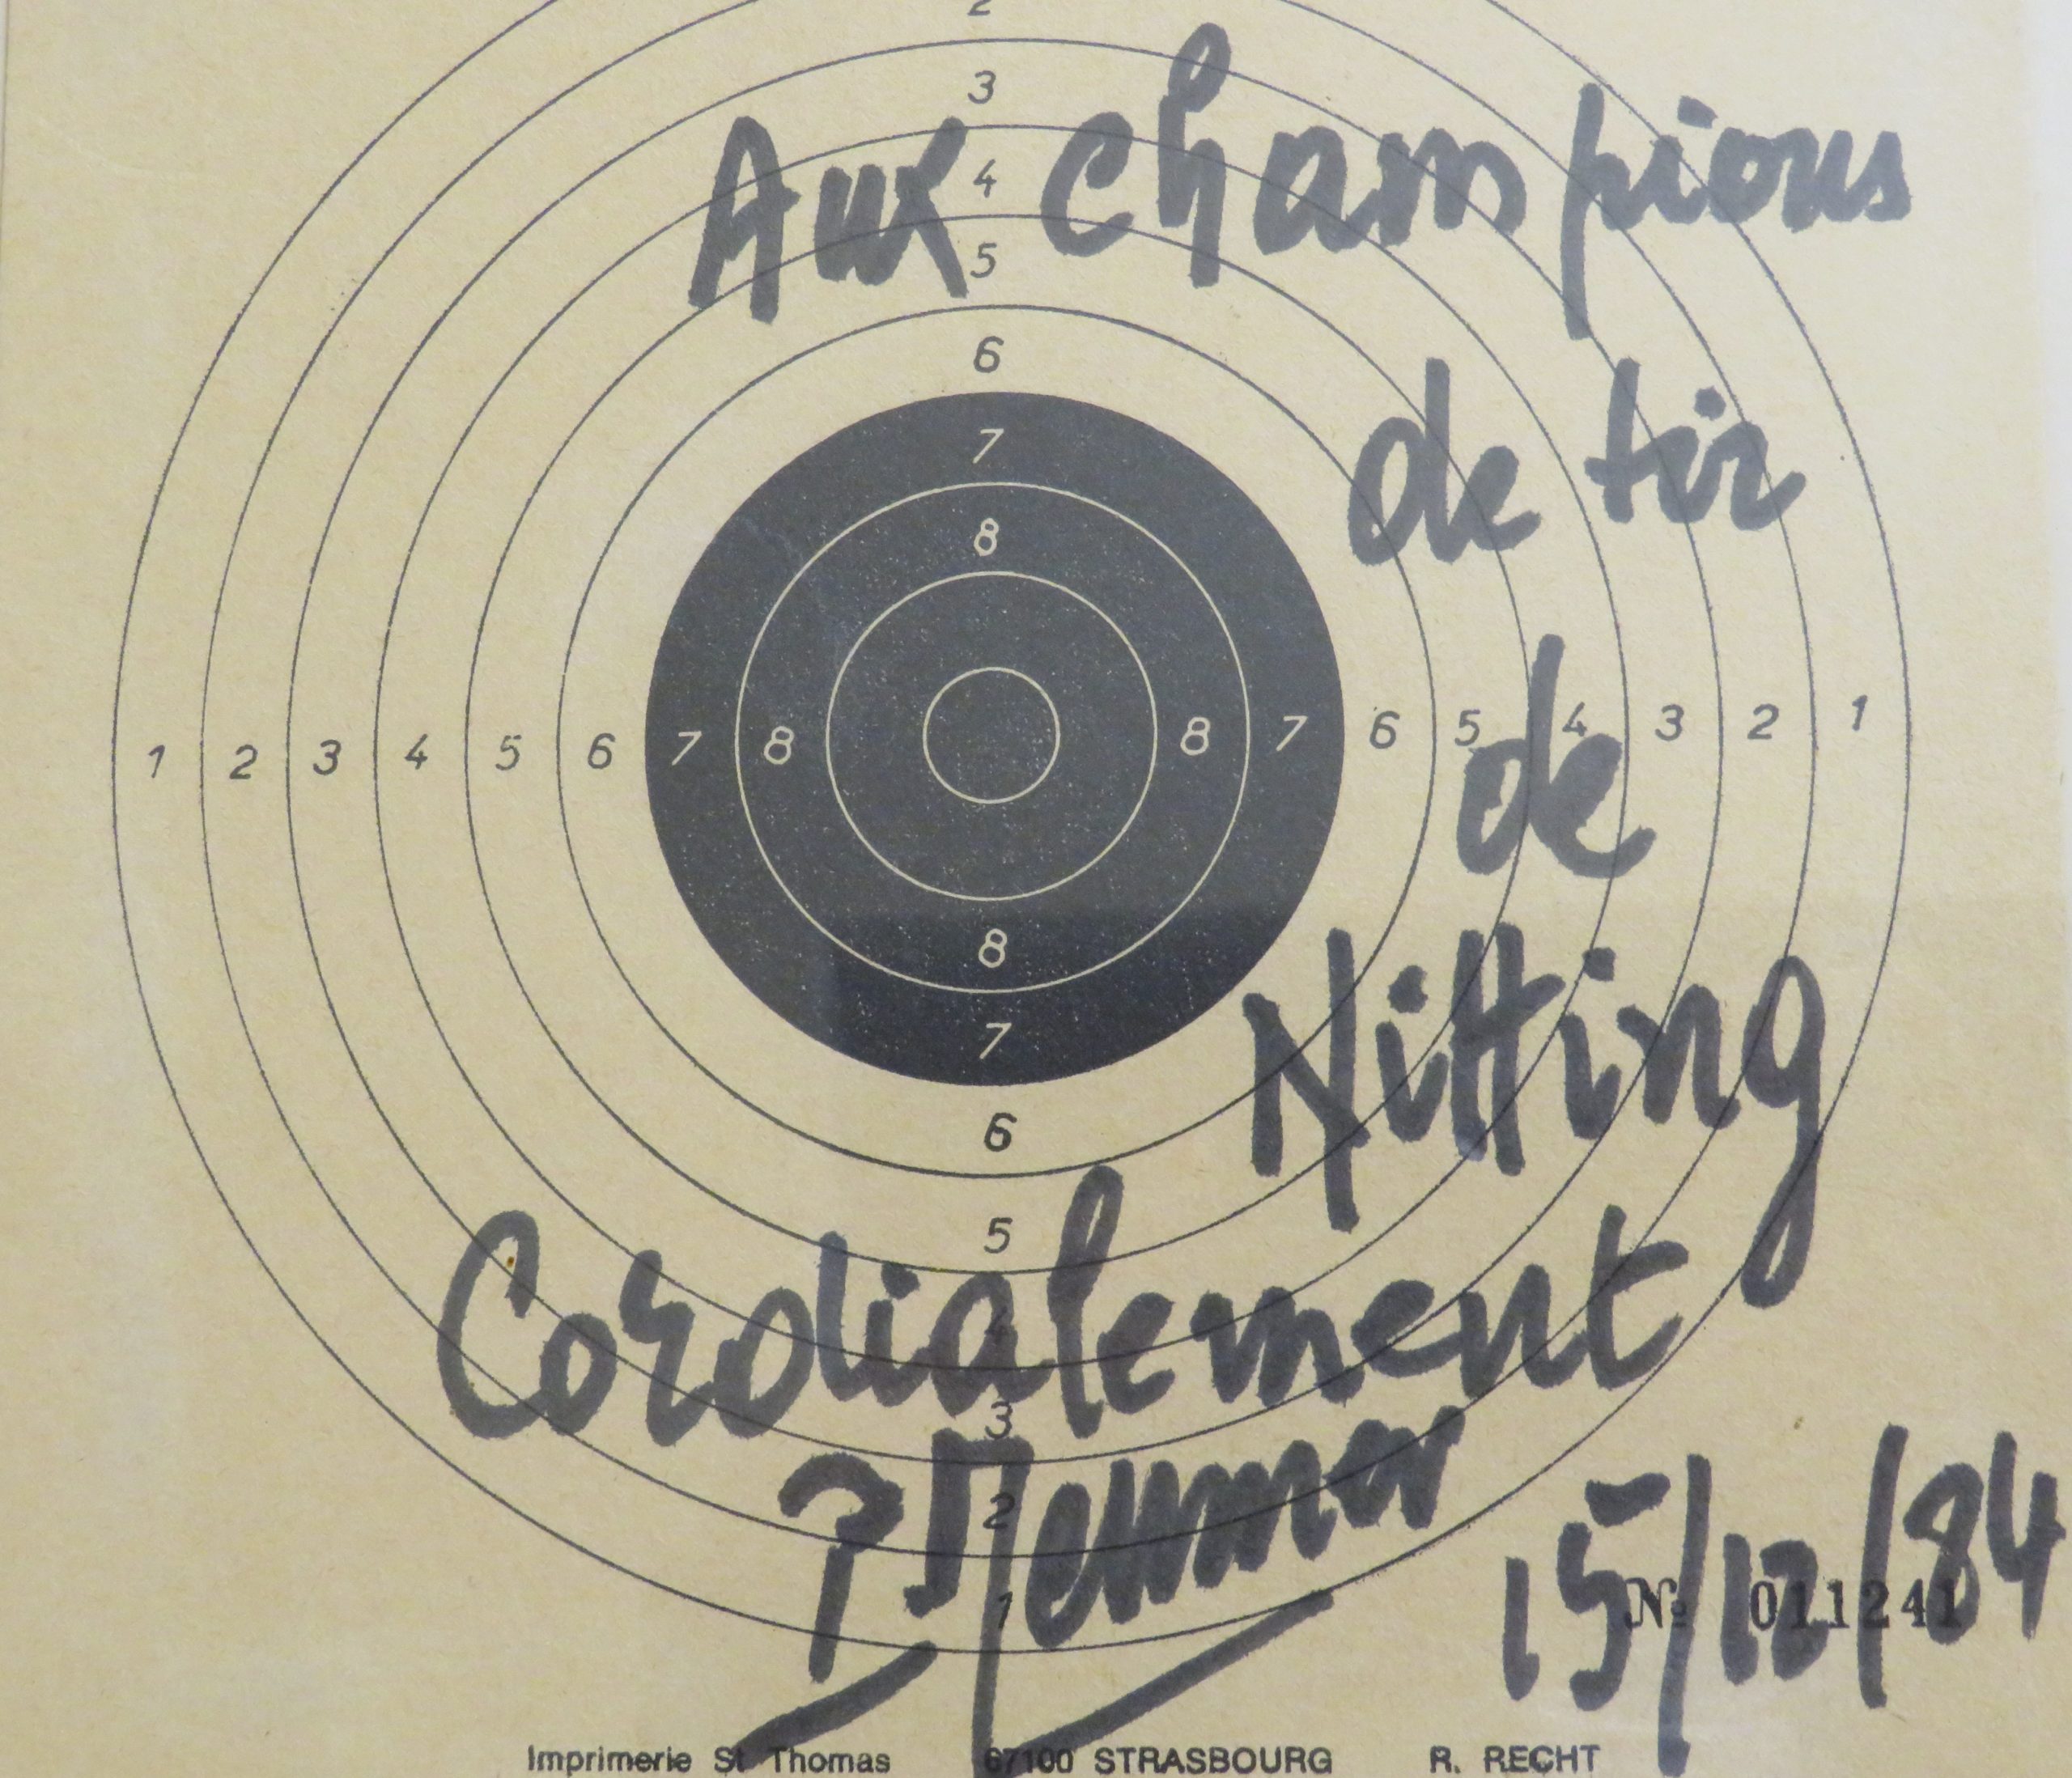 2
3
Aux Champions
4
5
6
de tir
7
8
1 2 3 4 5 6 7 8 8 7 6 5 4 3 2 1
de
8
7
Nitting
6
5
Cordialement
4
3
2
1
15/12/84
Nº 011241
Imprimerie St Thomas 67100 STRASBOURG R. RECHT